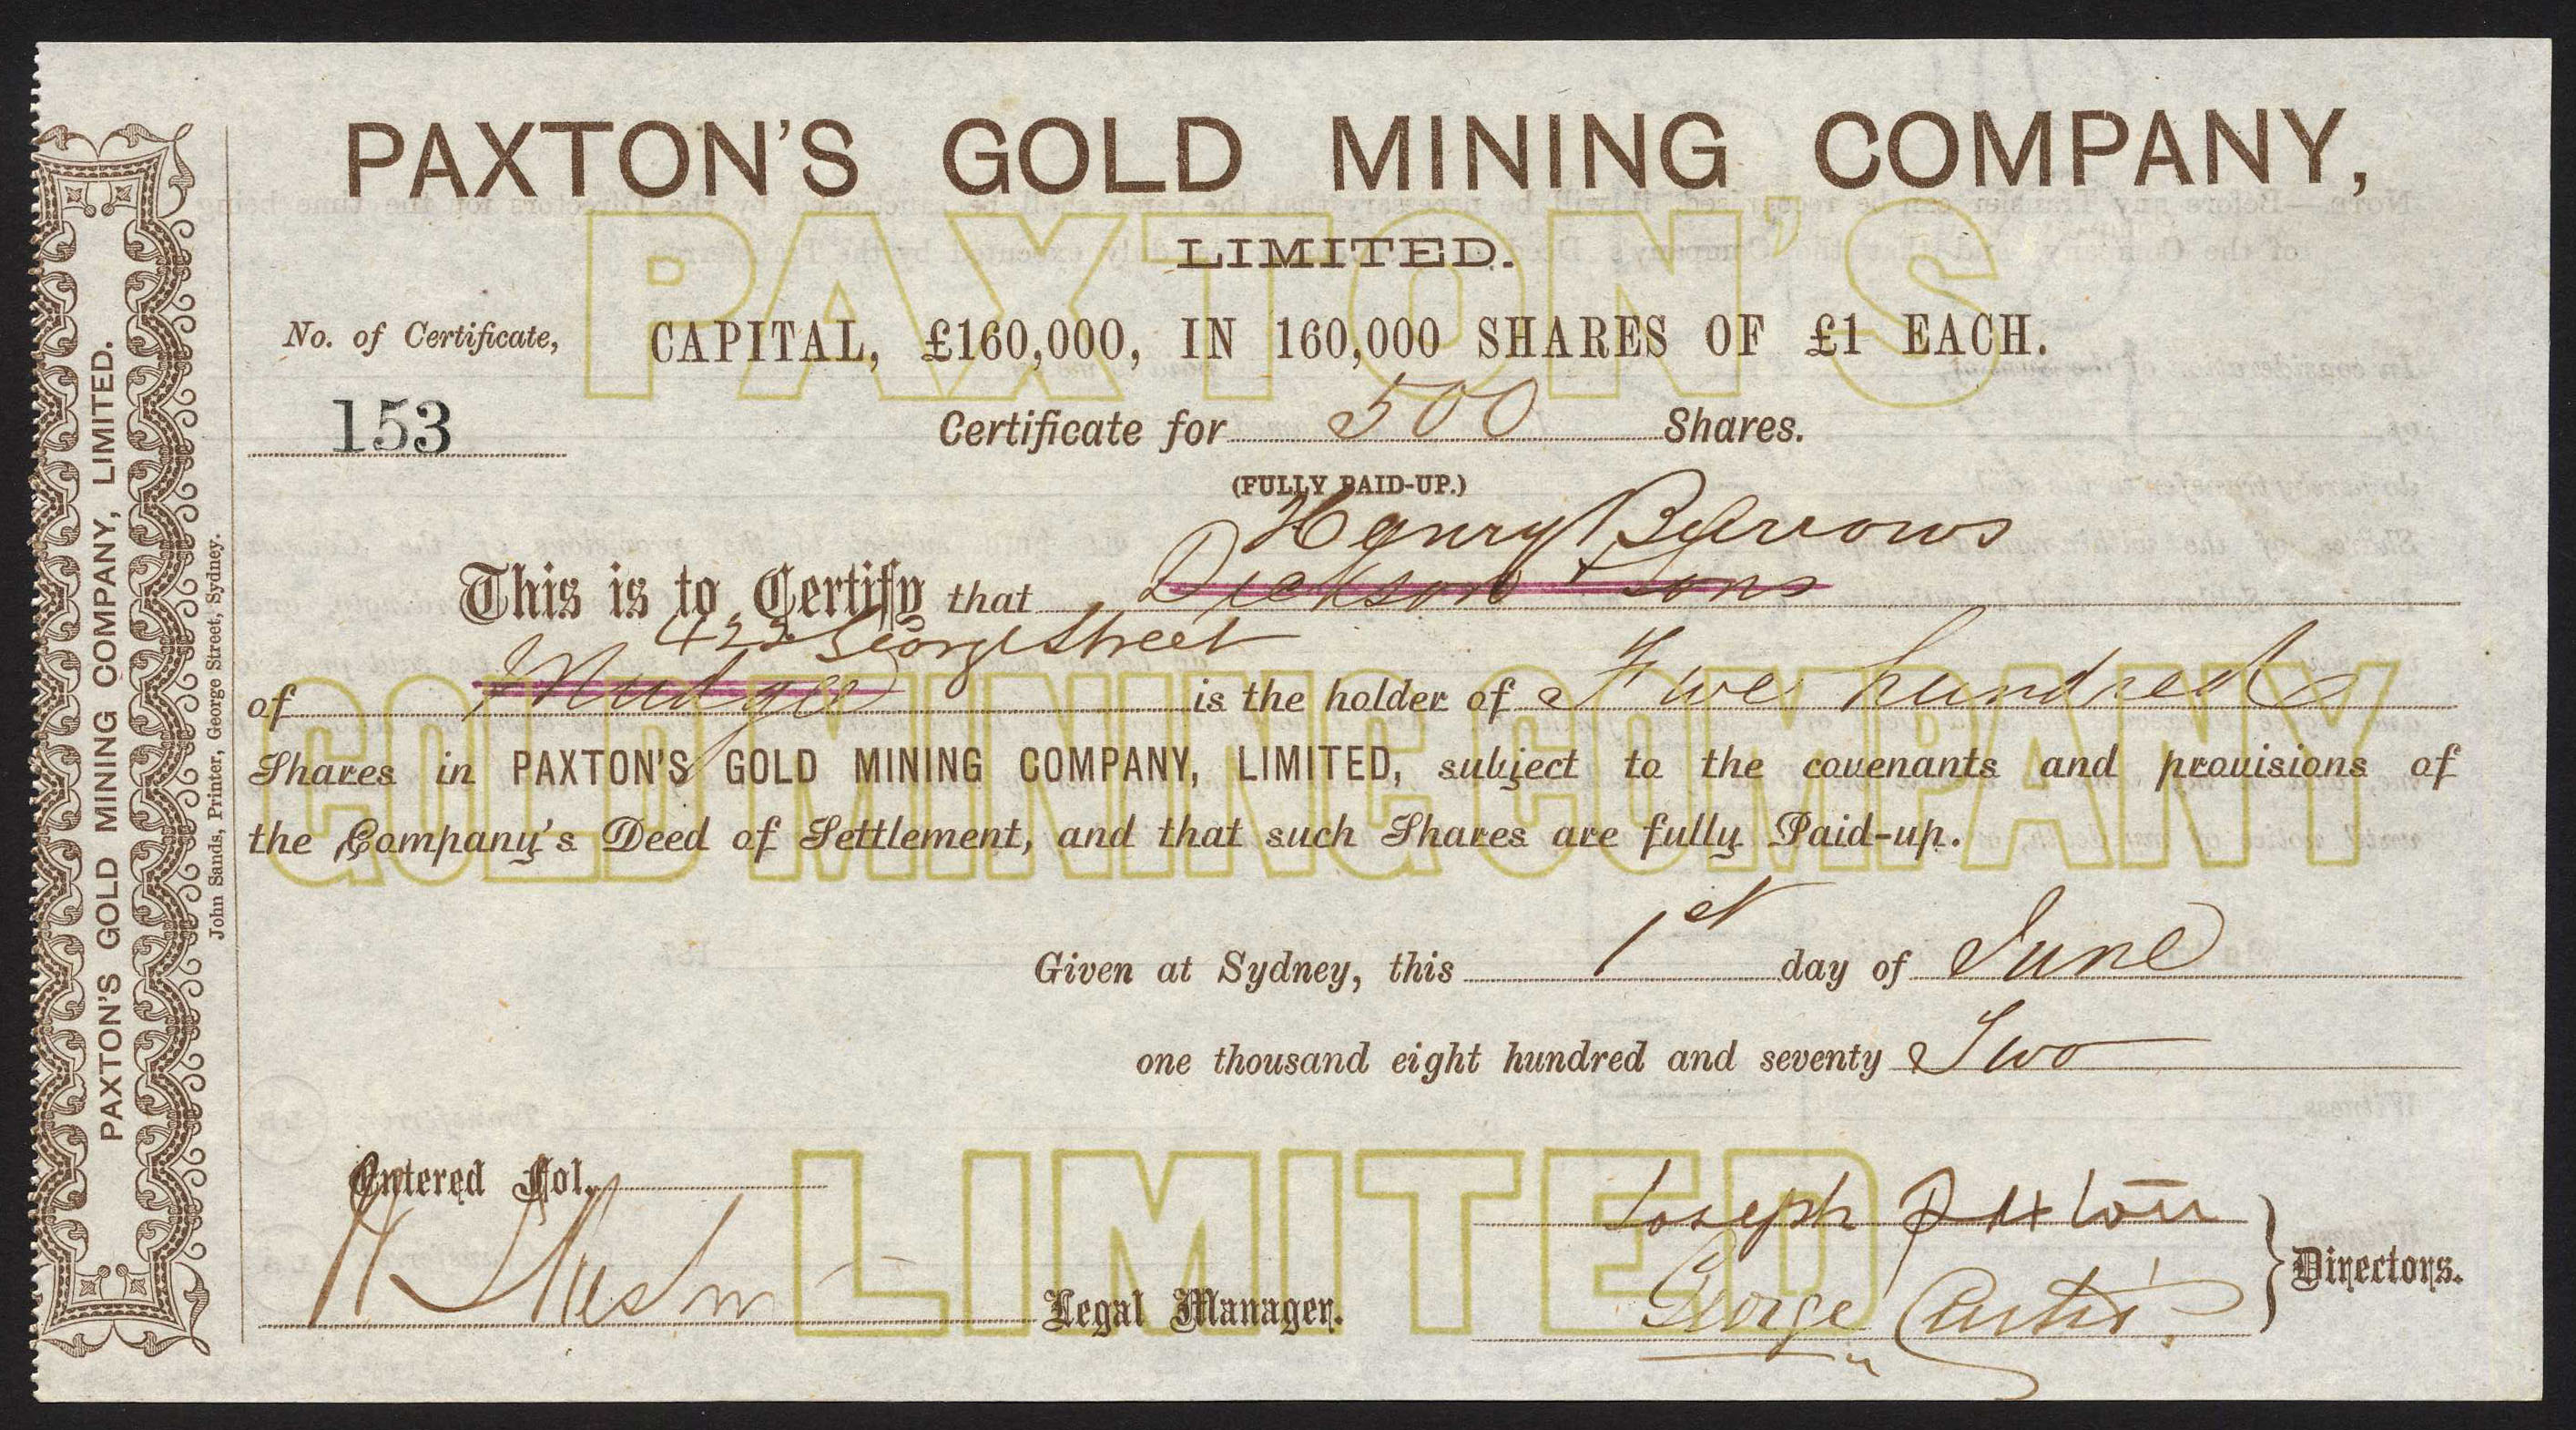 PAXTON'S GOLD MINING COMPANY,
LIMITED.
No. of Certificate,
CAPITAL, £160,000, IN 160,000 SHARES OF £1 EACH.
153
Certificate for 500 Shares.
(FULLY PAID-UP.)
Henry Burrows
This is to Certify that Dickson & Sons
422 George Street
of Mudgee is the holder of Five hundred
Shares in PAXTON'S GOLD MINING COMPANY, LIMITED, subject to the covenants and provisions of
the Company's Deed of Settlement, and that such Shares are fully Paid-up.
Given at Sydney, this 1st day of June
one thousand eight hundred and seventy Two
Entered Fol.
Legal Manager.
Joseph Paxton
George Curtis
Directors.
PAXTON'S GOLD MINING COMPANY, LIMITED.
John Sands, Printer, George Street, Sydney.
PAXTON'S
GOLD MINING COMPANY
LIMITED